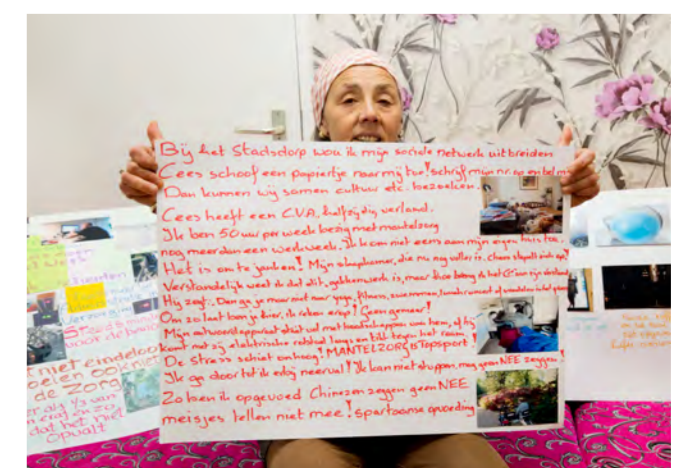 Bij het Stadsdorp wou ik mijn sociale netwerk uitbreiden
Cees schoof een papiertje naar mij toe! schrijf mijn nr. op en bel m
Dan kunnen wij samen cultuur etc. bezoeken.
Cees heeft een C.V.A., halfzijdig verlamd.
Ik ben 50 uur per week bezig met mantelzorg
nog meer dan een werkweek. Ik kom niet eens aan mijn eigen huis toe.
Het is om te janken! Mijn slaapkamer, die nu nog voller is. Chaos stapelt zich op!
Verstandelijk weet ik dat dit, gekkenwerk is, maar hoe breng ik het Cees aan zijn verstand
Hij zegt. Dan ga je maar niet naar yoga, fitness, zwemmen,
Om zo laat kom je hier, ik reken erop! Geen gemeier!
Mijn antwoordapparaat vol met boodschappen van hem, of hij
komt met zij elektrische rolstoel langs en tikt tegen het raam
De stress schiet omhoog! MANTELZORG IS TOPSPORT!
Ik ga door tot ik erbij neerval! Ik kan niet stoppen, mag geen NEE zeggen!
Zo ben ik opgevoed Chinezen zeggen geen NEE
meisjes tellen niet mee! Spartaanse opvoeding
niet eindeloo
de zorg
dat het niet
opvalt